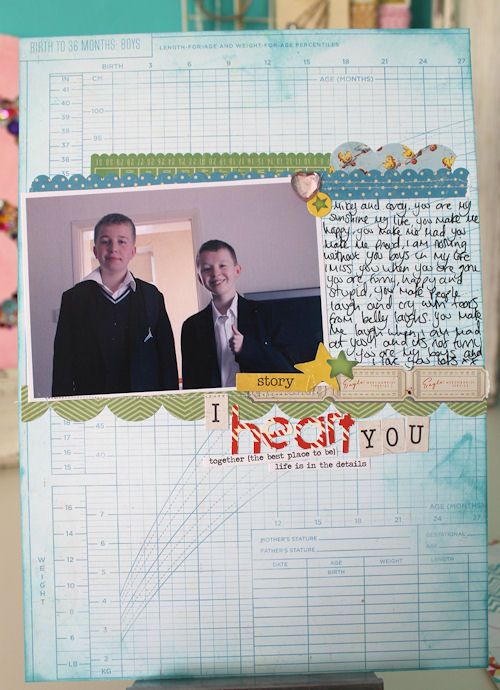 BIRTH TO 36 MONTHS: BOYS
LENGTH-FOR-AGE AND WEIGHT-FOR-AGE PERCENTILES
BIRTH 3 6 9 12 15 18 21 24 27
IN CM AGE (MONTHS)
41
40
39 100
38
37 95
36
35
Mikey and Corey, you are my
sunshine my life, you make me
happy you make me mad you
make me proud, i am nothing
without you boys in my life
i miss you when you are gone
you are funny, happy and
stupid, you make people
laugh and cry with tears
from belly laughs. you make
me laugh when i am mad
at you! and its not funny
you are my boys and
i love you
story
I heart YOU
together (the best place to be)
life is in the details
18 45
17
16 40
15
AGE (MONTHS)
12 15 18 21 24 27
16 7
14
6
12
5
10
8 4
6 3
2
LB KG
WEIGHT
MOTHER'S STATURE
FATHER'S STATURE
GESTATIONAL
AGE
DATE AGE WEIGHT LENGTH
BIRTH